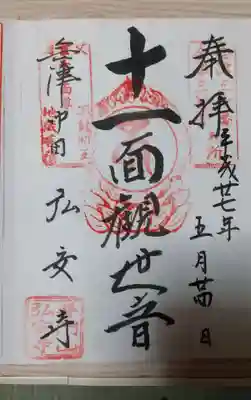 奉拜 平成廿七年
五月廿四日
十一面觀世音
會津中田 弘安寺